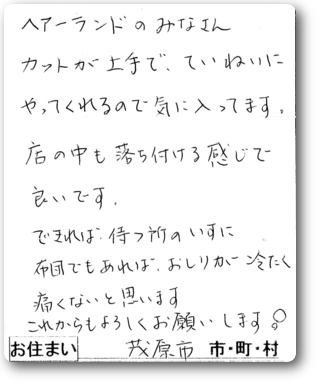 ヘアーランドのみなさん
カットが上手で、ていねいに
やってくれるので気に入ってます。
店の中も落ち付ける感じで
良いです。
できれば、待つ所のいすに
布団でもあれば、おしりが冷たく
痛くないと思います
これからもよろしくお願いします。
お住まい 茂原市 市・町・村